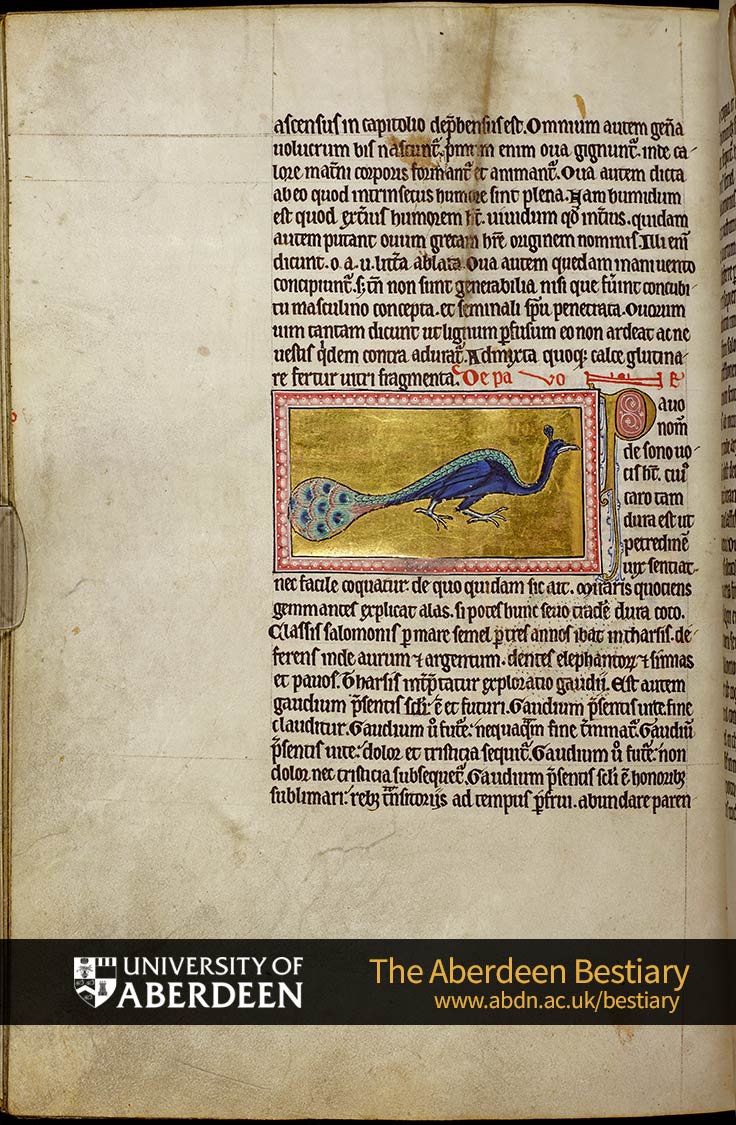 ascensus in capitolio dep̄hensus est. Omnium autem geña
uolucrum bis nascunt̄. p̄mum enim oua gignunt̄. inde ca
lore mat̄ni corporis formant̄ et animant̄. Oua autem dicta
ab eo quod intrinsecus humore sint plena. Nam humidum
est quod ext̄ius humorem h̄t. uiuidum qđ int̄ius. quidam
autem putant ouum grecam h̄re originem nominis. Illi eni̅
dicunt. o. a. u. litt̄a ablata. Oua autem quedam inani uento
concipiunt̄. s; t̄n non sunt generabilia nisi que fūint concubi
tu masculino concepta. et seminali sp̄u penetrata. Ouorum
uim tantam dicunt ut lignum p̄fusum eo non ardeat ac ne
uestis q̇dem contra adurat̄. Admixta quoq; calce glutina
re fertur uitri fragmenta. De pa vo ne
Pauo
nom̄
de sono uo
cis h̄t. cui᷒
caro tam
dura est ut
petredinē
uix sentiat.
nec facile coquatur. de quo quidam sic ait. Miraris quotiens
gemmantes explicat alas. si potes hunc seuo tradē dura coco.
Classis salomonis p mare semel p tres annos ibat in tharsis. de
ferens inde aurum ⁊ argentum. dentes elephantoꝝ ⁊ simias
et pauos. Tharsis int̄p̄tatur exploratio gaudii. Est autem
gaudium p̄sentis sc̄li. ē et futuri. Gaudium p̄sentis uite fine
clauditur. Gaudium ū fut̄e. nequaq̄m fine t̄minat̄. Gaudiū
p̄sentis uite. dolor et tristicia sequit̄. Gaudium ū fut̄e. non
dolor nec tristicia subsequet̄. Gaudium p̄sentis sc̄li ē honorib;
sublimari. reb; t̄nsitoriis ad tempus p̄frui. abundare paren
UNIVERSITY OF
ABERDEEN
The Aberdeen Bestiary
www.abdn.ac.uk/bestiary